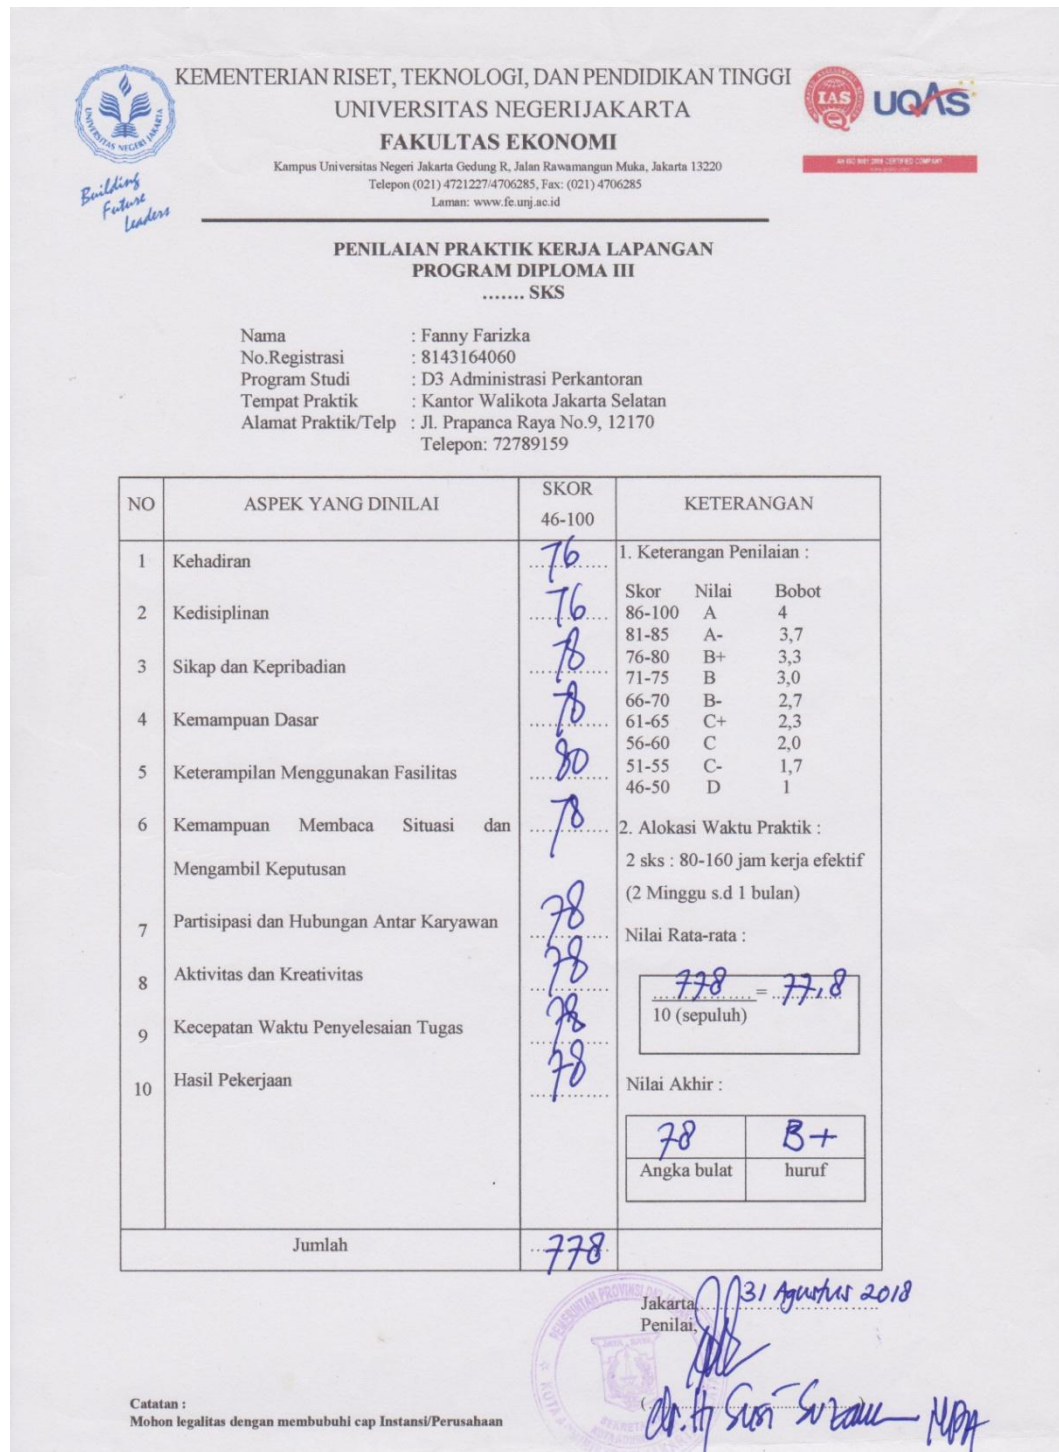 KEMENTERIAN RISET, TEKNOLOGI, DAN PENDIDIKAN TINGGI
UNIVERSITAS NEGERIJAKARTA
FAKULTAS EKONOMI
Kampus Universitas Negeri Jakarta Gedung R, Jalan Rawamangun Muka, Jakarta 13220
Telepon (021) 4721227/4706285, Fax: (021) 4706285
Laman: www.fe.unj.ac.id
UNIVERSITAS NEGERI JAKARTA
Building
Future
Leaders
IAS
UQAS
AN ISO 9001:2008 CERTIFIED COMPANY
PENILAIAN PRAKTIK KERJA LAPANGAN
PROGRAM DIPLOMA III
....... SKS
Nama : Fanny Farizka
No.Registrasi : 8143164060
Program Studi : D3 Administrasi Perkantoran
Tempat Praktik : Kantor Walikota Jakarta Selatan
Alamat Praktik/Telp : Jl. Prapanca Raya No.9, 12170
Telepon: 72789159
NO ASPEK YANG DINILAI SKOR 46-100 KETERANGAN
1 Kehadiran 76
2 Kedisiplinan 76
3 Sikap dan Kepribadian 78
4 Kemampuan Dasar 78
5 Keterampilan Menggunakan Fasilitas 80
6 Kemampuan Membaca Situasi dan 78
Mengambil Keputusan
7 Partisipasi dan Hubungan Antar Karyawan 78
8 Aktivitas dan Kreativitas 78
9 Kecepatan Waktu Penyelesaian Tugas 78
10 Hasil Pekerjaan 78
1. Keterangan Penilaian :
Skor Nilai Bobot
86-100 A 4
81-85 A- 3,7
76-80 B+ 3,3
71-75 B 3,0
66-70 B- 2,7
61-65 C+ 2,3
56-60 C 2,0
51-55 C- 1,7
46-50 D 1
2. Alokasi Waktu Praktik :
2 sks : 80-160 jam kerja efektif
(2 Minggu s.d 1 bulan)
Nilai Rata-rata :
778 = 77,8
10 (sepuluh)
Nilai Akhir :
78 B+
Angka bulat huruf
Jumlah 778
Jakarta, 31 Agustus 2018
Penilai,
PEMERINTAH PROVINSI DKI
JAYA RAYA
Catatan :
Mohon legalitas dengan membubuhi cap Instansi/Perusahaan
Hj Susi MPA